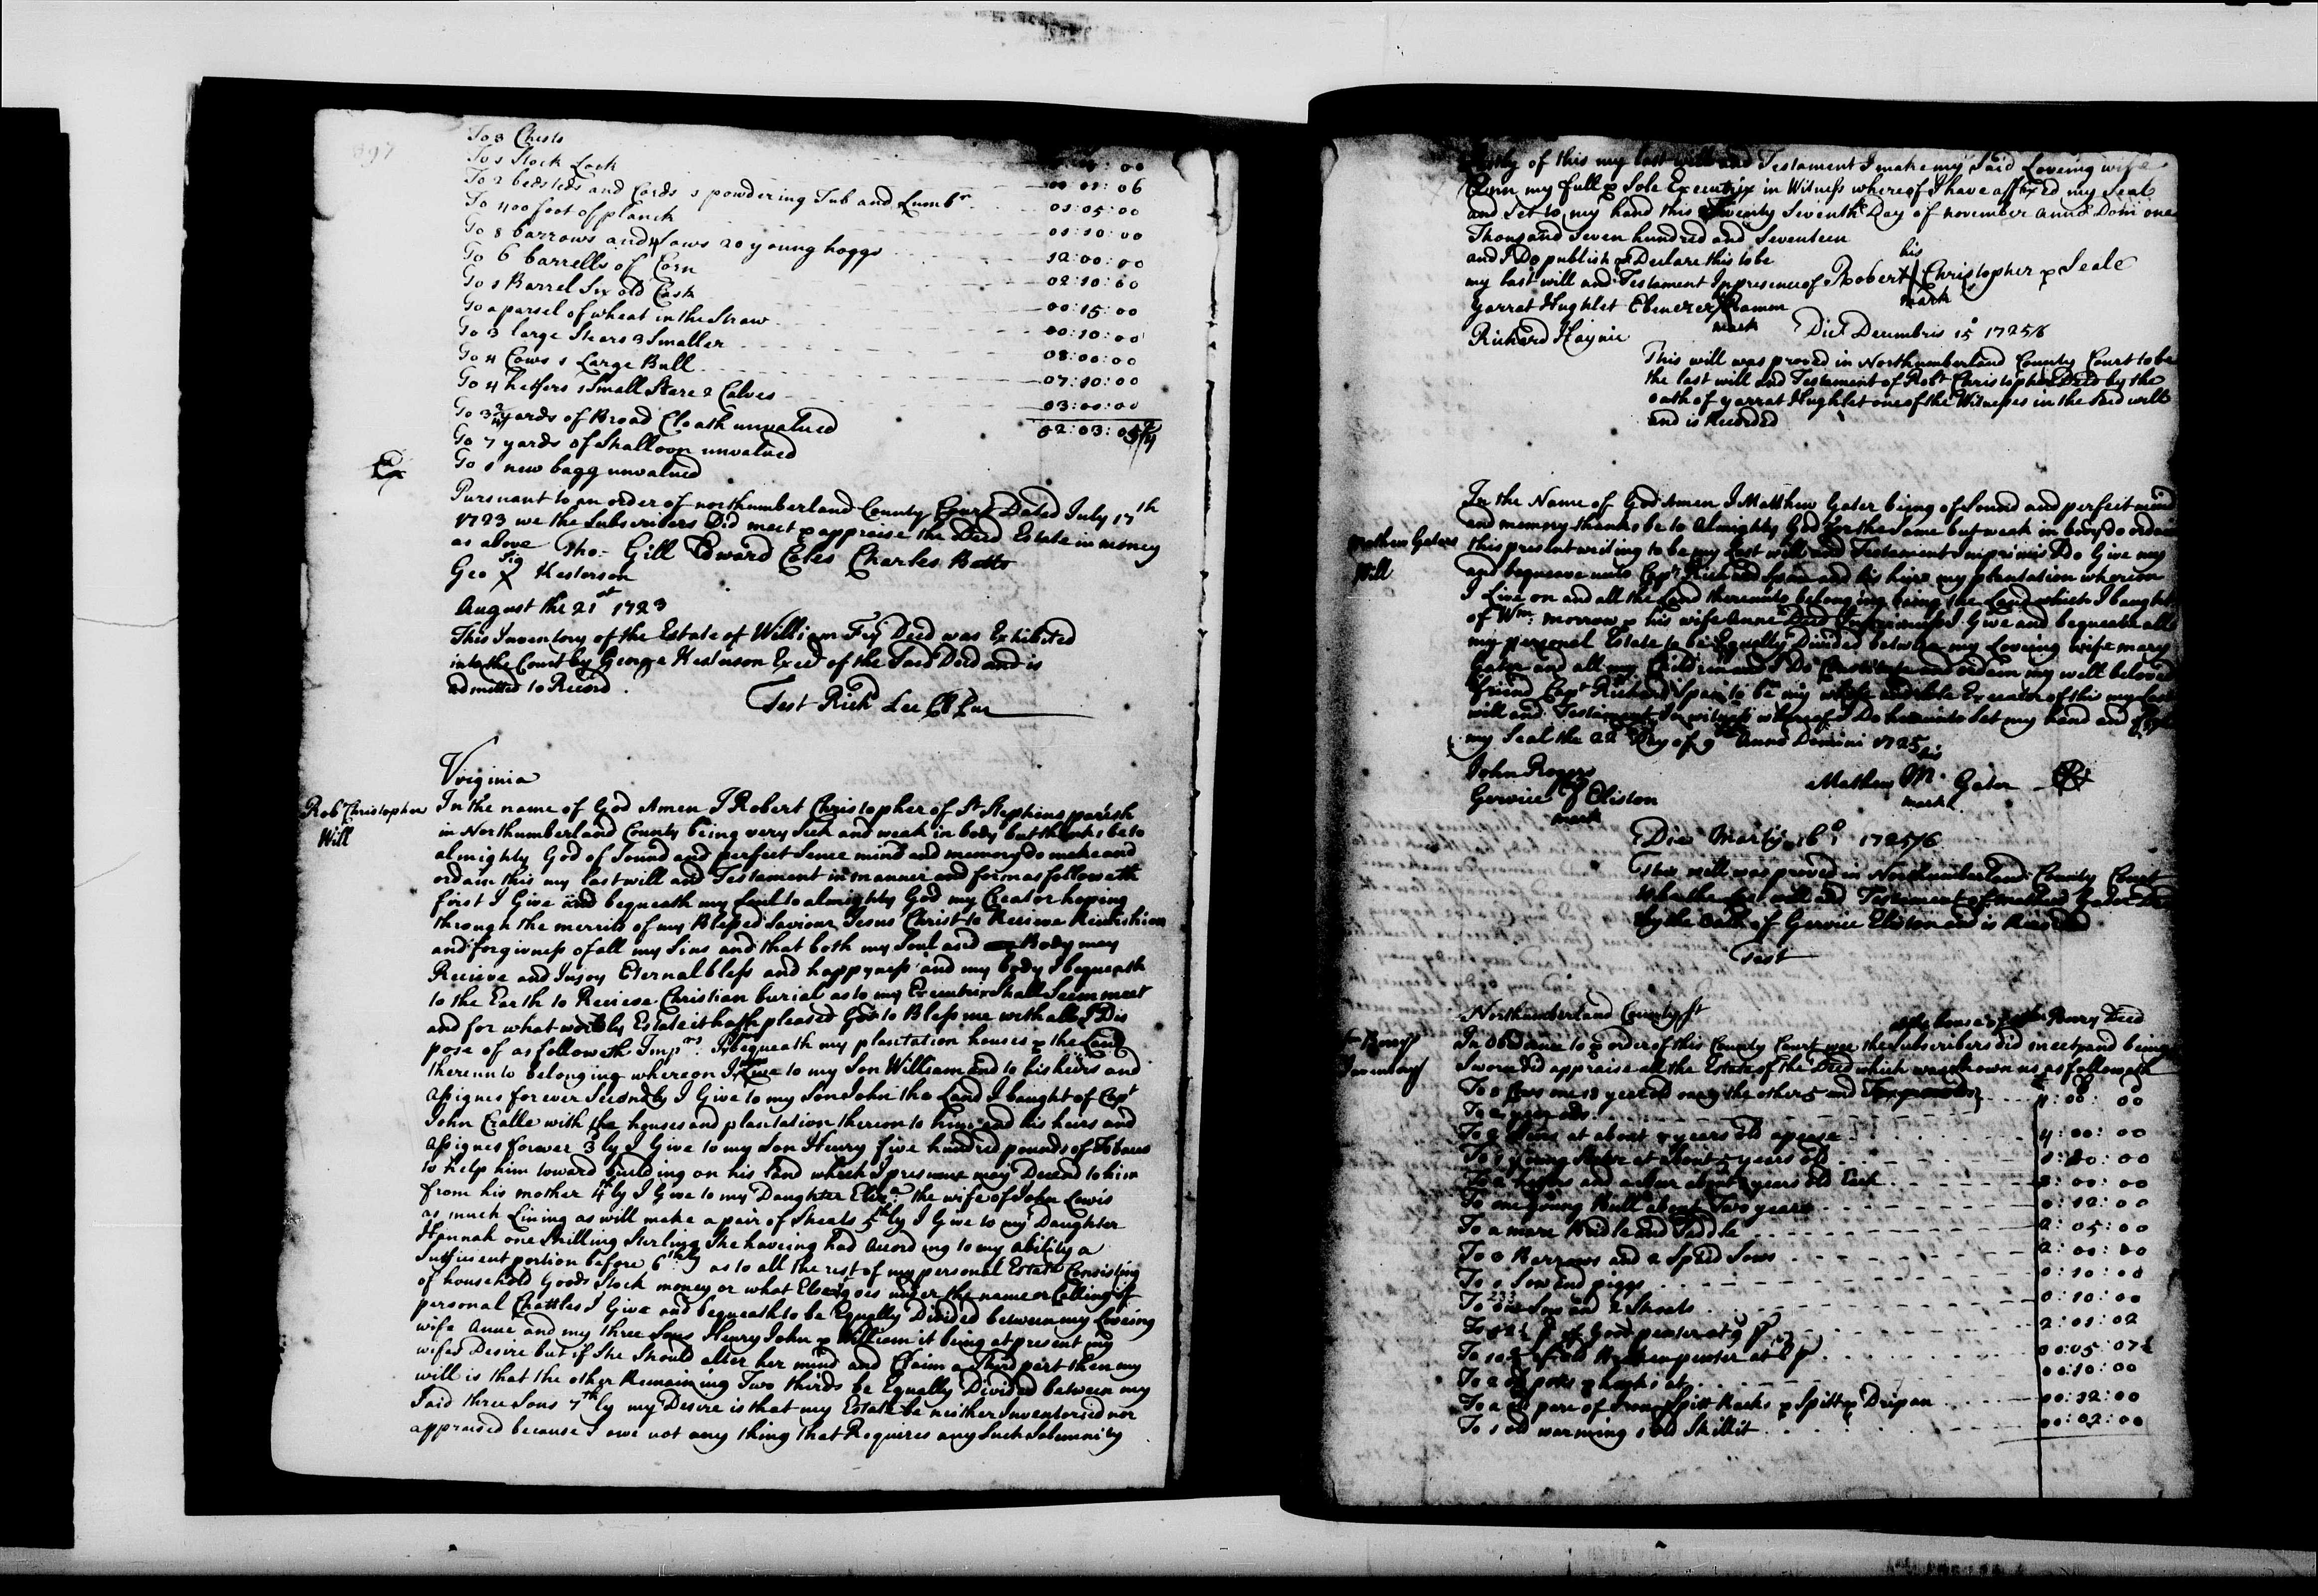 397
To 3 Chests
To 1 Stock Lock
To 2 bedsteds and Cords 1 powdering Tub and Lumbr
To 400 foot of planck
To 8 barrows and 4 Sows 20 young hoggs
To 6 barrells of Corn
To 1 Barrel Six old Cask
To a parsel of wheat in the Straw
To 3 large Steers 3 Smaller
To 4 Cows 1 Large Bull
To 4 heifers 1 Small Stere 2 Calves
To 3 yards of Broad Cloath unvalued
To 7 yards of Shalloon unvalued
To 1 new bagg unvalued
:00
:06
01:05:00
01:10:00
12:00:00
02:10:00
00:15:00
00:10:00
08:00:00
07:10:00
03:00:00
52:03:05
Pursuant to an order of northumberland County Court Dated July 17th
1723 we the Subscribers Did meet & appraise the Decd Estate in money
as above Tho: Gill Edward Coles Charles Betts
Sig
Geo X Kesterson
August the 21st 1723
This Inventory of the Estate of William Fry Decd was Exhibited
into the Court by George Kesterson Execr of the Said Decd and is
admitted to Record.
Test Richd Lee Cl Cur
Virginia
Rob Christopher
Will
In the name of God Amen I Robert Christopher of St Stephens parish
in Northumberland County being very Sick and weak in body but thanks be to
almighty God of Sound and perfect Sence mind and memory do make and
ordain this my last will and Testament in manner and form as followeth
first I Give and bequeath my Soul to almighty God my Creator hoping
through the merrits of my Blessed Saviour Jesus Christ to Receive Remission
and forgivness of all my Sins and that both my Soul and Body may
Recieve and Injoy Eternal bless and happyness and my body I bequeath
to the Earth to Recieve Christian burial as to my Executrix Shall Seem meet
and for what worldly Estate it hath pleased God to Bless me withall I Dis
pose of as followeth Imprs I bequeath my plantation houses & the Land
thereunto belonging whereon I Live to my Son William and to his heirs and
assignes forever Secondly I Give to my Son John the Land I bought of Capt
John Cralle with the houses and plantation thereon to him and his heirs and
assignes forever 3ly I Give to my Son Henry five hundred pounds of Tobacco
to help him toward building on his land which I presume may Decend to him
from his mother 4thly I Give to my Daughter Eliza the wife of John Lewis
as much Lining as will make a pair of Sheats 5thly I Give to my Daughter
Hannah one Shilling Sterling She haveing had Accord ing to my ability a
Sufficient portion before 6thly as to all the rest of my personal Estate Consisting
of household Goods Stock money or what Else goes under the name or Calling of
personal Chattles I Give and bequeath to be Equally Divided between my Loveing
wife Anne and my three Sons Henry John & William it being at present my
wifes Desire but if She Should alter her mind and Claim a Third part then my
will is that the other Remaining Two thirds be Equally Divided between my
Said three Sons 7thly my Desire is that my Estate be neither Inventoried nor
appraised because I owe not any thing that Requires any Such Solemnity
Lastly of this my last will and Testament I make my Said Loveing wife
Ann my full & Sole Executrix in Witness whereof I have affixed my Seale
and Set to my hand this Twenty Seventh Day of november anno Domi one
Thousand Seven hundred and Seventeen
and I Do publish & Declare this to be
my last will and Testament In presence of Robert Christopher & Seale
his
mark
Garrat Hughlet Ebenezer
mark
Richard Haynie
Die Decembris 15 1725/6
This will was proved in Northumberland County Court to be
the last will and Testament of Robt Christopher Decd by the
oath of yarrat Hughlet one of the Witnesses in the Said will
and is Recorded
Mathew Gaters
Will
In the Name of God Amen I Matthew Gater being of Sound and perfect mind
and memory thanks be to Almighty God for the Same but weak in body do ordain
this present writing to be my Last will and Testament Imprimis I Do Give my
and bequeave unto Capt Richard Spann and his heirs my plantation whereon
I Live on and all the Land thereunto belonging being the Land which I bought
of Wm: morrow & his wife Anne Decd I Give and bequeath all
my personal Estate to be Equally Divided between my Loveing wife mary
Gater and all my Children and I Do Constitute and ordain my well beloved
friend Capt Richard Span to be my whole and Sole Executor of this my last
will and Testament In witness whereof I Do hereunto Set my hand and
my Seal the 22 Day of 9br Anno Domini 1725
John Rogers
Gervice Eliston
mark
his
Mathew M Gater
mark
Die Martij 16o 1725/6
This will was proved in Northumberland County Court
to be the last will and Testament of Mathew Gater Decd
by the Oath of Gervice Eliston and is Recorded
Test
Northumberland County Sst
Inventory
at the house of Penry Decd
In Obedience to & order of this County Court wee the Subscribers did meet and being
Sworn did appraise all the Estate of the Decd which was Shown us as followeth
To 2 year olds
To 2 at about 4 years old apeace
To 1 young Steere at about 5 years old
To 2 heifers and a Steer about years old Each
To one young Bull about Two years
To a mare Bridle and Saddle
To Barrows and 2 Spaid Sows
To a Sow and piggs
To one Sow and 2 Shoats
To of Good peuter at 9
To of old peuter at 6
To 2 old potts & hooks at
To a old pare of Iron Spitt Racks & Spitt & Dripan
To 1 old warming 1 old Skillit
4:00:00
0:12:00
2:05:00
2:00:00
0:10:00
0:10:00
2:01:02
00:05:07½
00:10:00
00:12:00
00:02:00